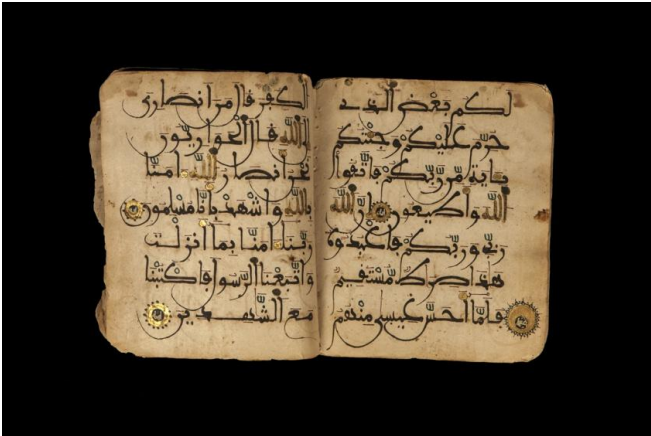 لكم بعض الذى
حرّم عليكم وجئتكم
بـاية مّن رّبّكم فاتّقوا
اللّه وأطيعون إنّ اللّه
ربّى وربّكم فاعبدوه
هذا صرط مّستقيم
فلمّا أحسّ عيسى منهم
الكفر قال من أنصارى
إلى اللّه قال الحواريّون
نحن أنصار اللّه امنّا
باللّه واشهد بأنّا مسلمون
ربّنا امنّا بما أنزلت
واتّبعنا الرّسول فاكتبنا
مع الشّهدين